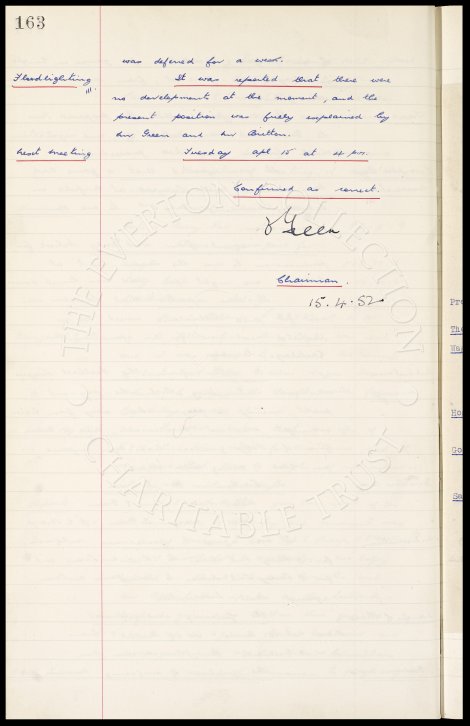 163
was deferred for a week.
Floodlighting It was reported that there were
no developments at the moment, and the
present position was fully explained by
Mr Green and Mr Britton.
Next Meeting Tuesday Apl 15 at 4 pm.
Confirmed as correct.
Green
Chairman.
15.4.52
THE EVERTON COLLECTION
CHARITABLE TRUST